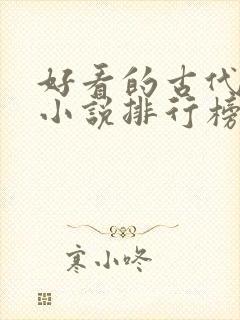 好看的古代
小说排行榜
寒小咚